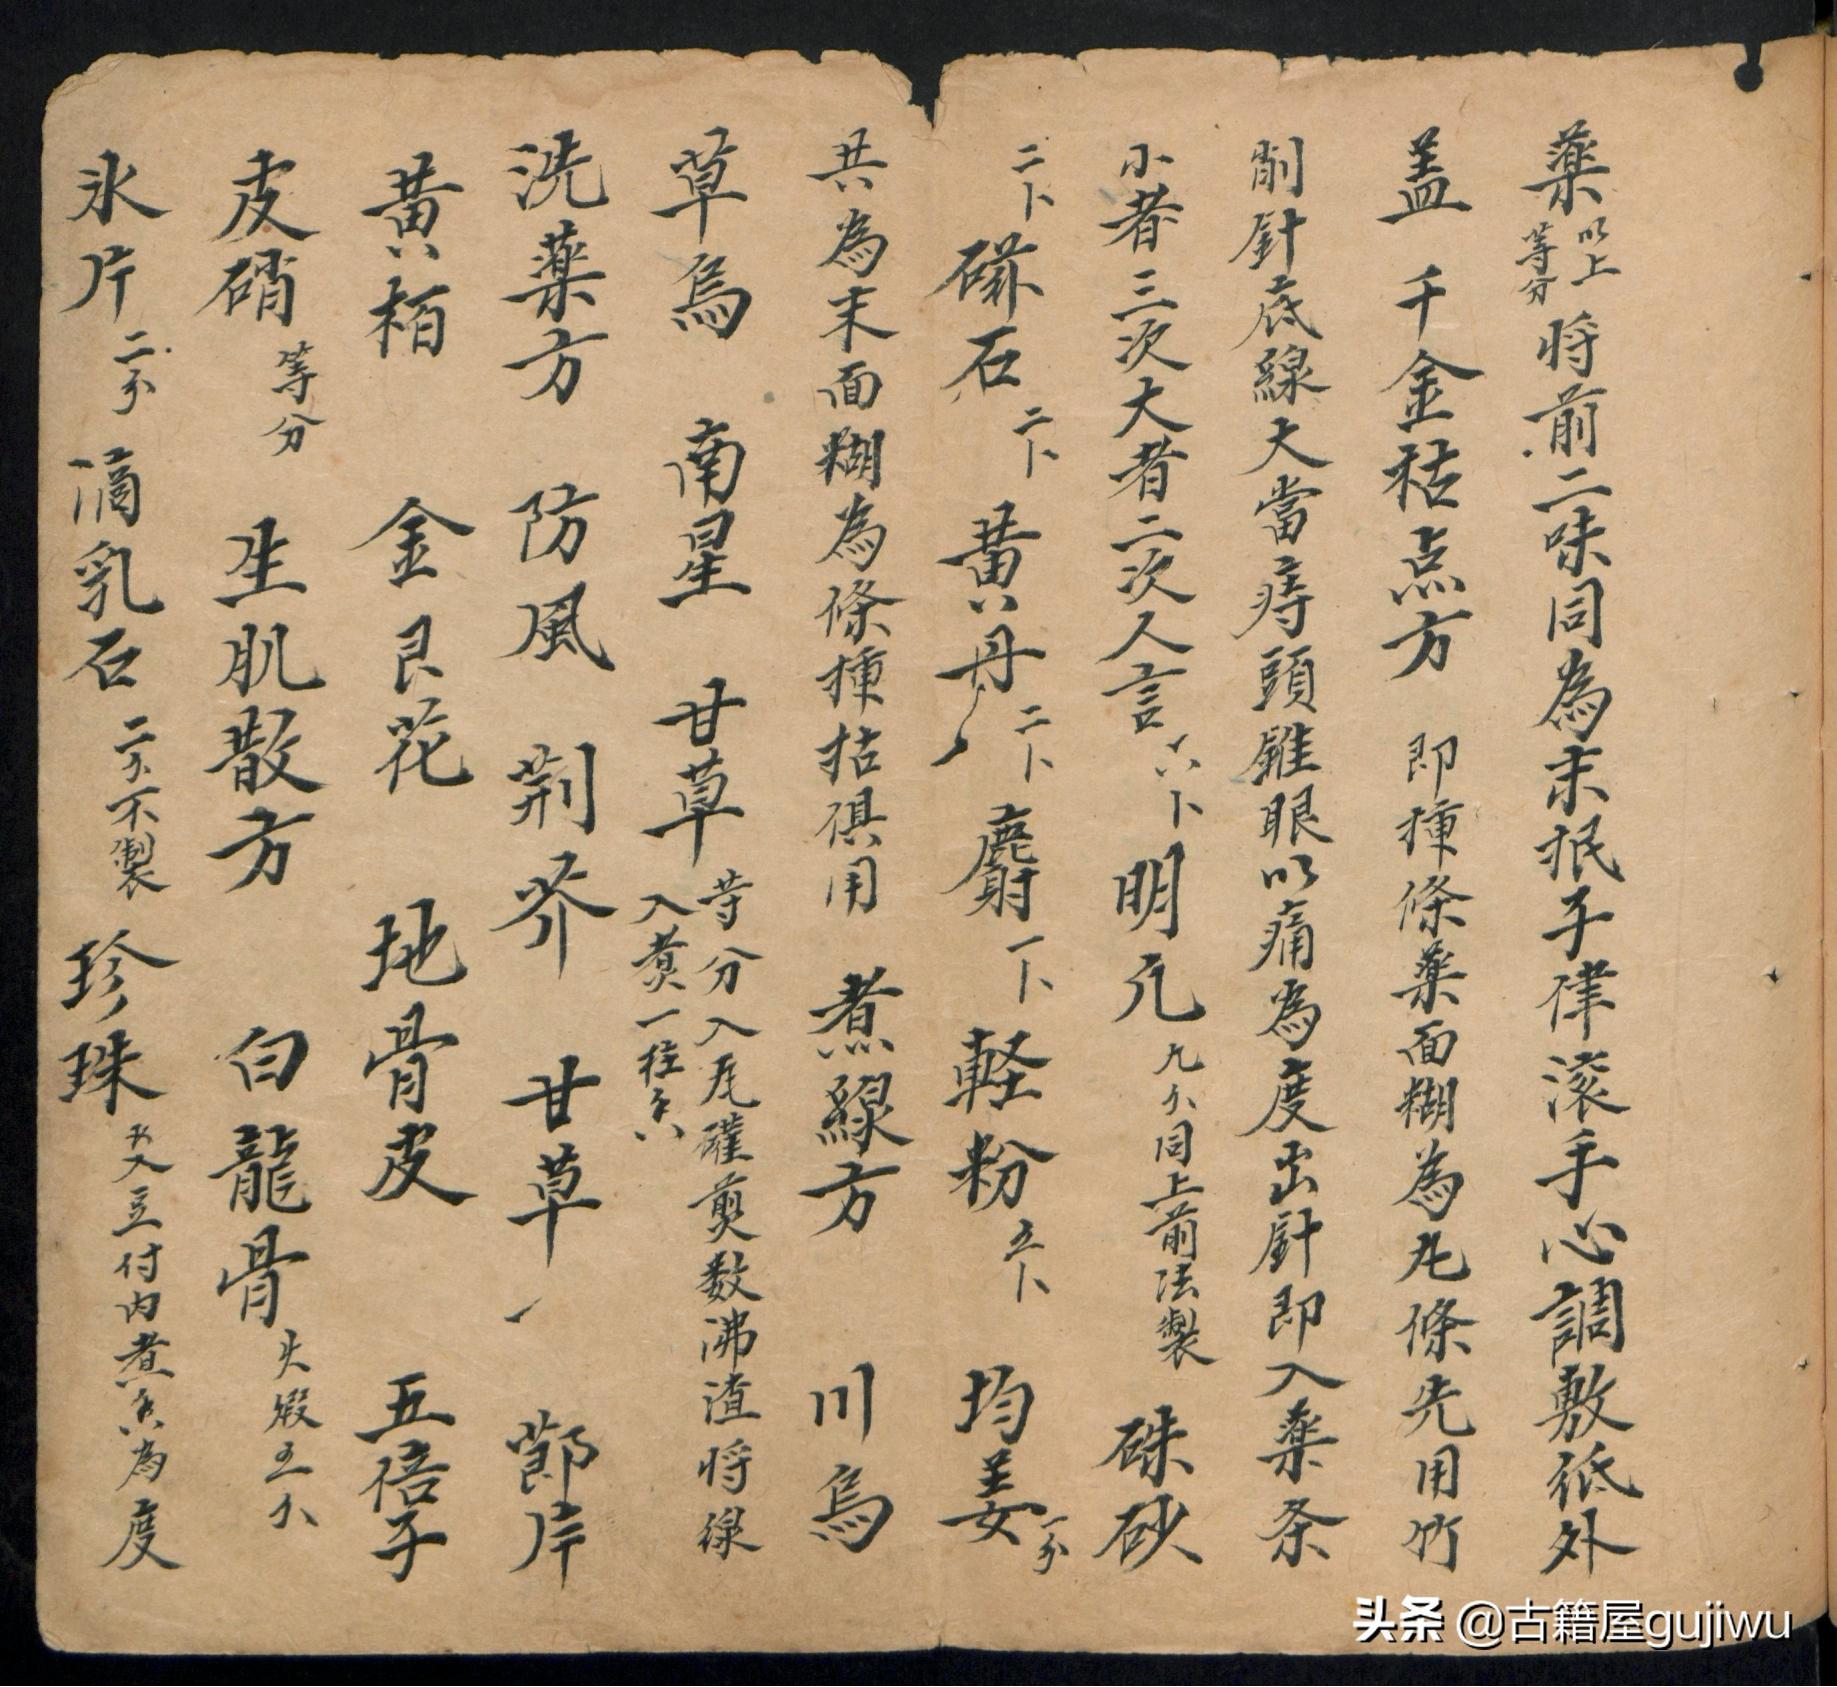 薬以上等分将前二味同為末抿子律滚手心調敷低外
盖 千金秙点方 即揷條薬面糊為丸條先用竹
削針底線大當痔頭錐眼以痛為度出針即入薬条
小者三次大者二次人言六卜明亢九分同上前法製 硃砂
二卜礠石二卜黄丹二卜麝一卜軽粉五卜 均姜一分
共為末面糊為條揷拈俱用 煮線方 川烏
草烏 南星 甘草等分入瓦礶煎数沸渣将線入煮一柱香
洗薬方 防風 荆芥 甘草 莭片
黄栢 金艮花 地骨皮 五倍子
皮硝等分 生肌散方 白龍骨火煅五分
氷片二分 滴乳石二分不製 珍珠入豆付内煮香為度
头条 @古籍屋gujiwu